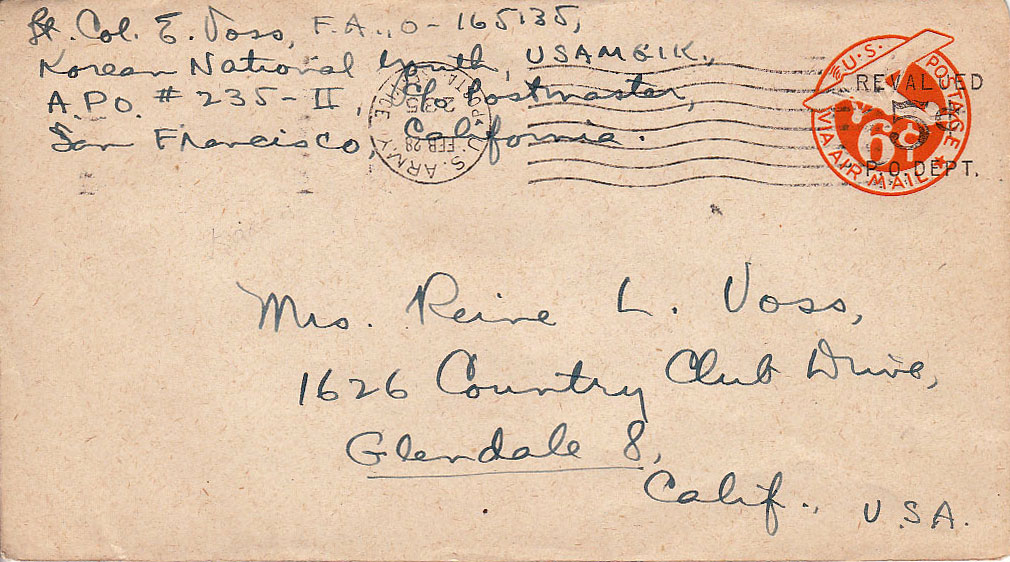 Lt. Col. E. Voss, F.A., O-165135,
Korean National Youth, USAMGIK,
A.P.O. # 235-II, c/o Postmaster,
San Francisco, California.
U.S. ARMY
FEB 28
U.S. POSTAGE
REVALUED
5¢
6¢
P.O. DEPT.
VIA AIR MAIL
Mrs. Reine L. Voss,
1626 Country Club Drive,
Glendale 8,
Calif., U.S.A.